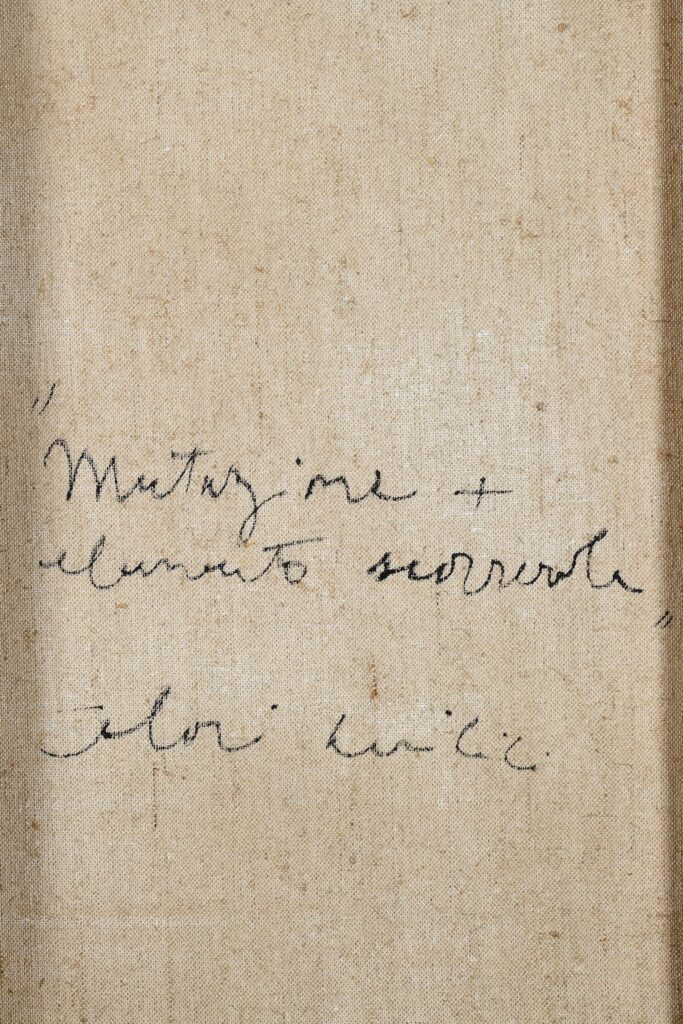 "Mutazione +
elemento scorrevole"
colori acrilici